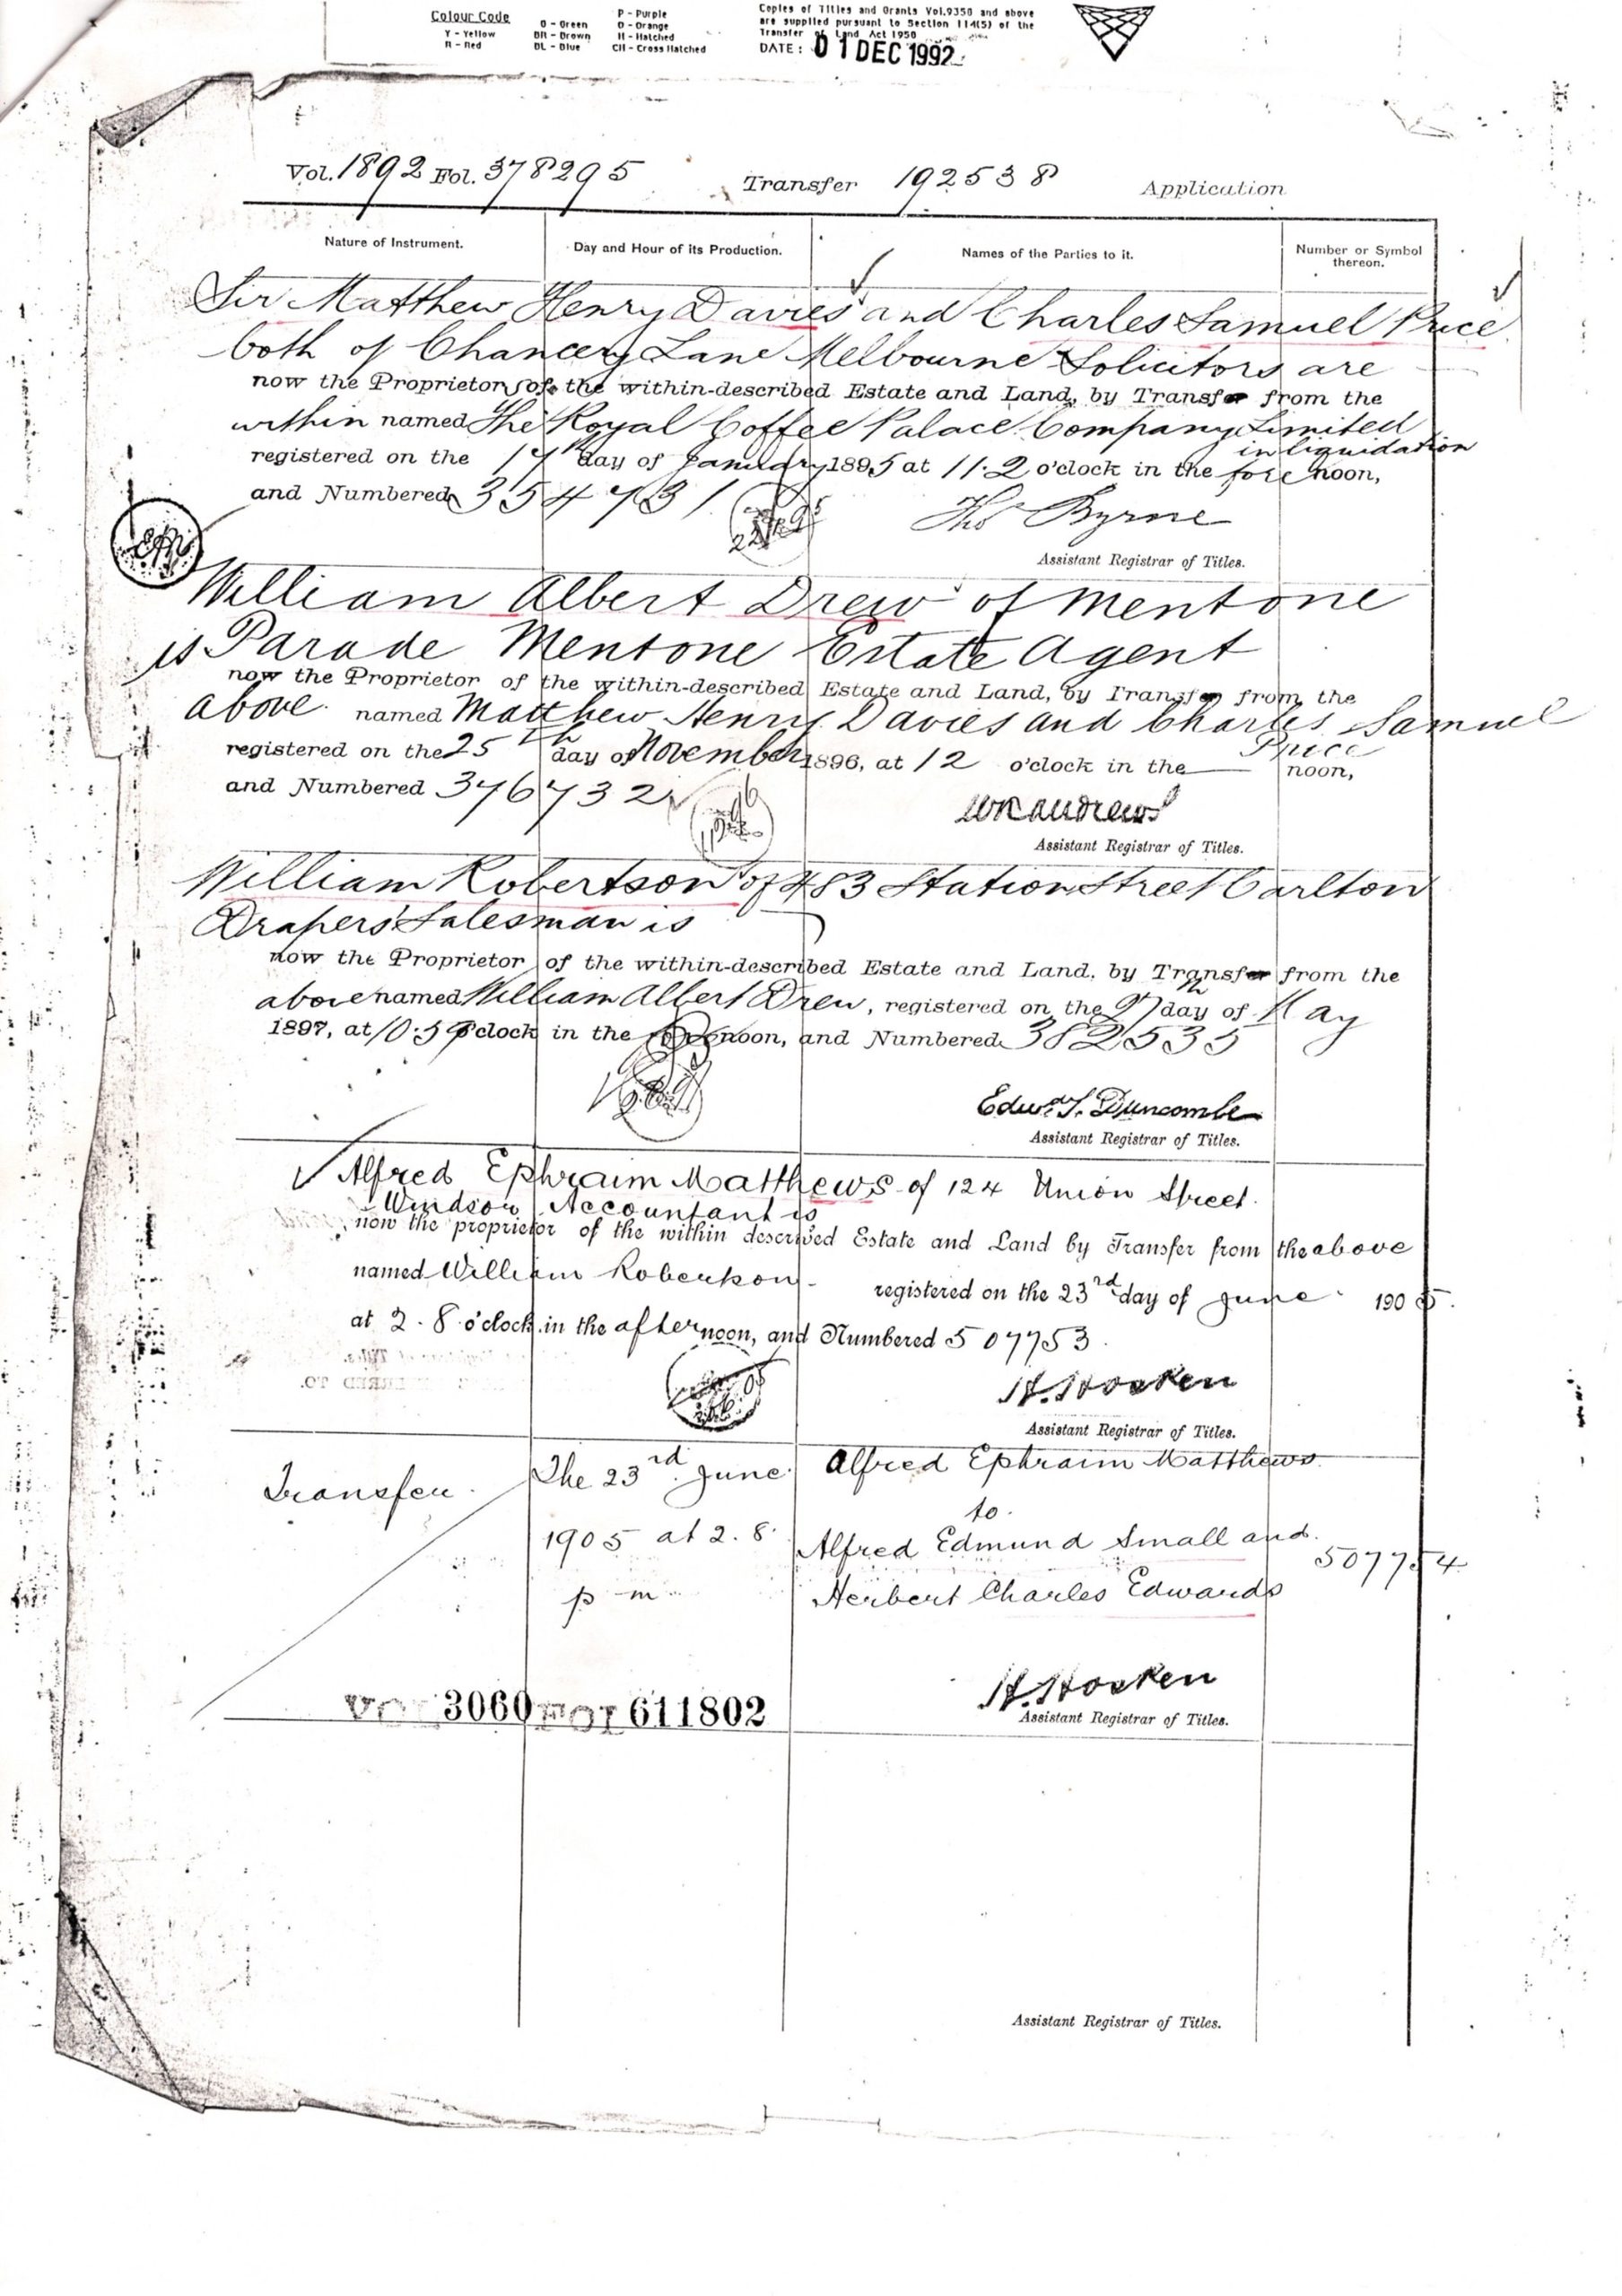 Colour Code
Y - Yellow
R - Red
G - Green
BR - Brown
BL - Blue
P - Purple
O - Orange
H - Hatched
CH - Cross Hatched
Copies of Titles and Grants Vol.9350 and above
are supplied pursuant to Section 114(5) of the
Transfer of Land Act 1958
DATE: 01 DEC 1992
Vol. 1892 Fol. 378295 Transfer 192538 Application
Nature of Instrument. Day and Hour of its Production. Names of the Parties to it. Number or Symbol thereon.
Sir Matthew Henry Davies and Charles Samuel Price
both of Chancery Lane Melbourne Solicitors are
now the Proprietors of the within-described Estate and Land, by Transfer from the
within named The Royal Coffee Palace Company Limited
in liquidation
registered on the 17th day of January 1895 at 11.2 o'clock in the fore noon,
and Numbered 354731
Thos Byrne
Assistant Registrar of Titles.
William Albert Drew of Mentone
Parade Mentone Estate Agent
is
now the Proprietor of the within-described Estate and Land, by Transfer from the
above named Matthew Henry Davies and Charles Samuel
Price
registered on the 25th day of November 1896, at 12 o'clock in the noon,
and Numbered 376732
WR Andrews
Assistant Registrar of Titles.
William Robertson of 483 Station Street Carlton
Drapers' Salesman is
now the Proprietor of the within-described Estate and Land, by Transfer from the
above named William Albert Drew, registered on the day of May
1897, at 10.59 o'clock in the noon, and Numbered 382535
Edwd. T. Duncombe
Assistant Registrar of Titles.
Alfred Ephraim Matthews of 124 Union Street
Windsor Accountant is
now the proprietor of the within described Estate and Land by Transfer from the above
named William Robertson registered on the 23rd day of June 1905.
at 2.8 o'clock in the afternoon, and Numbered 507753.
H. Hosken
Assistant Registrar of Titles.
Transfer The 23rd June Alfred Ephraim Matthews
to
1905 at 2.8 Alfred Edmund Small and 507754
p m Herbert Charles Edwards
H. Hosken
Assistant Registrar of Titles.
VOL 3060 FOL 611802
Assistant Registrar of Titles.